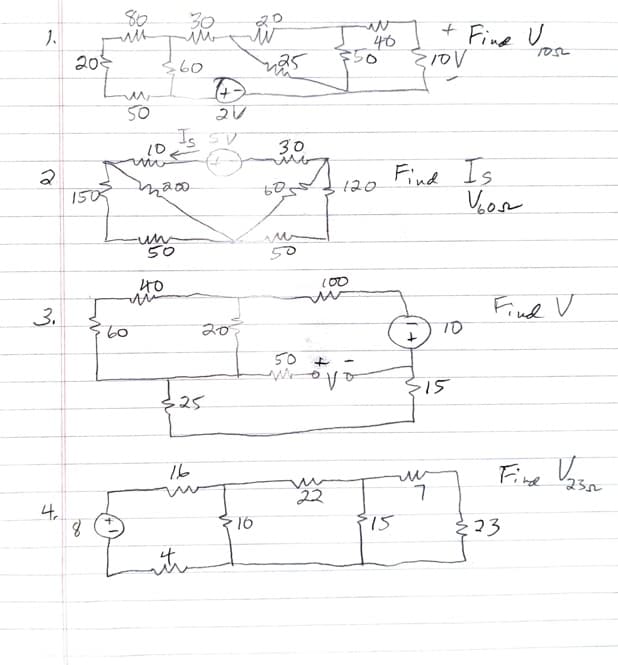 1. 80 30 20 40 + Find V10Ω
20 60 25 50 10V -
50 + - 2V
2 10 Is 5V 30 Find Is
150 200 60 120 V60Ω
50 50
3. 40 100 Find V
60 20 - + 10
50 + V - 15
25
4. 16 22 7 Find V23Ω
8 + - 10 15 23
4